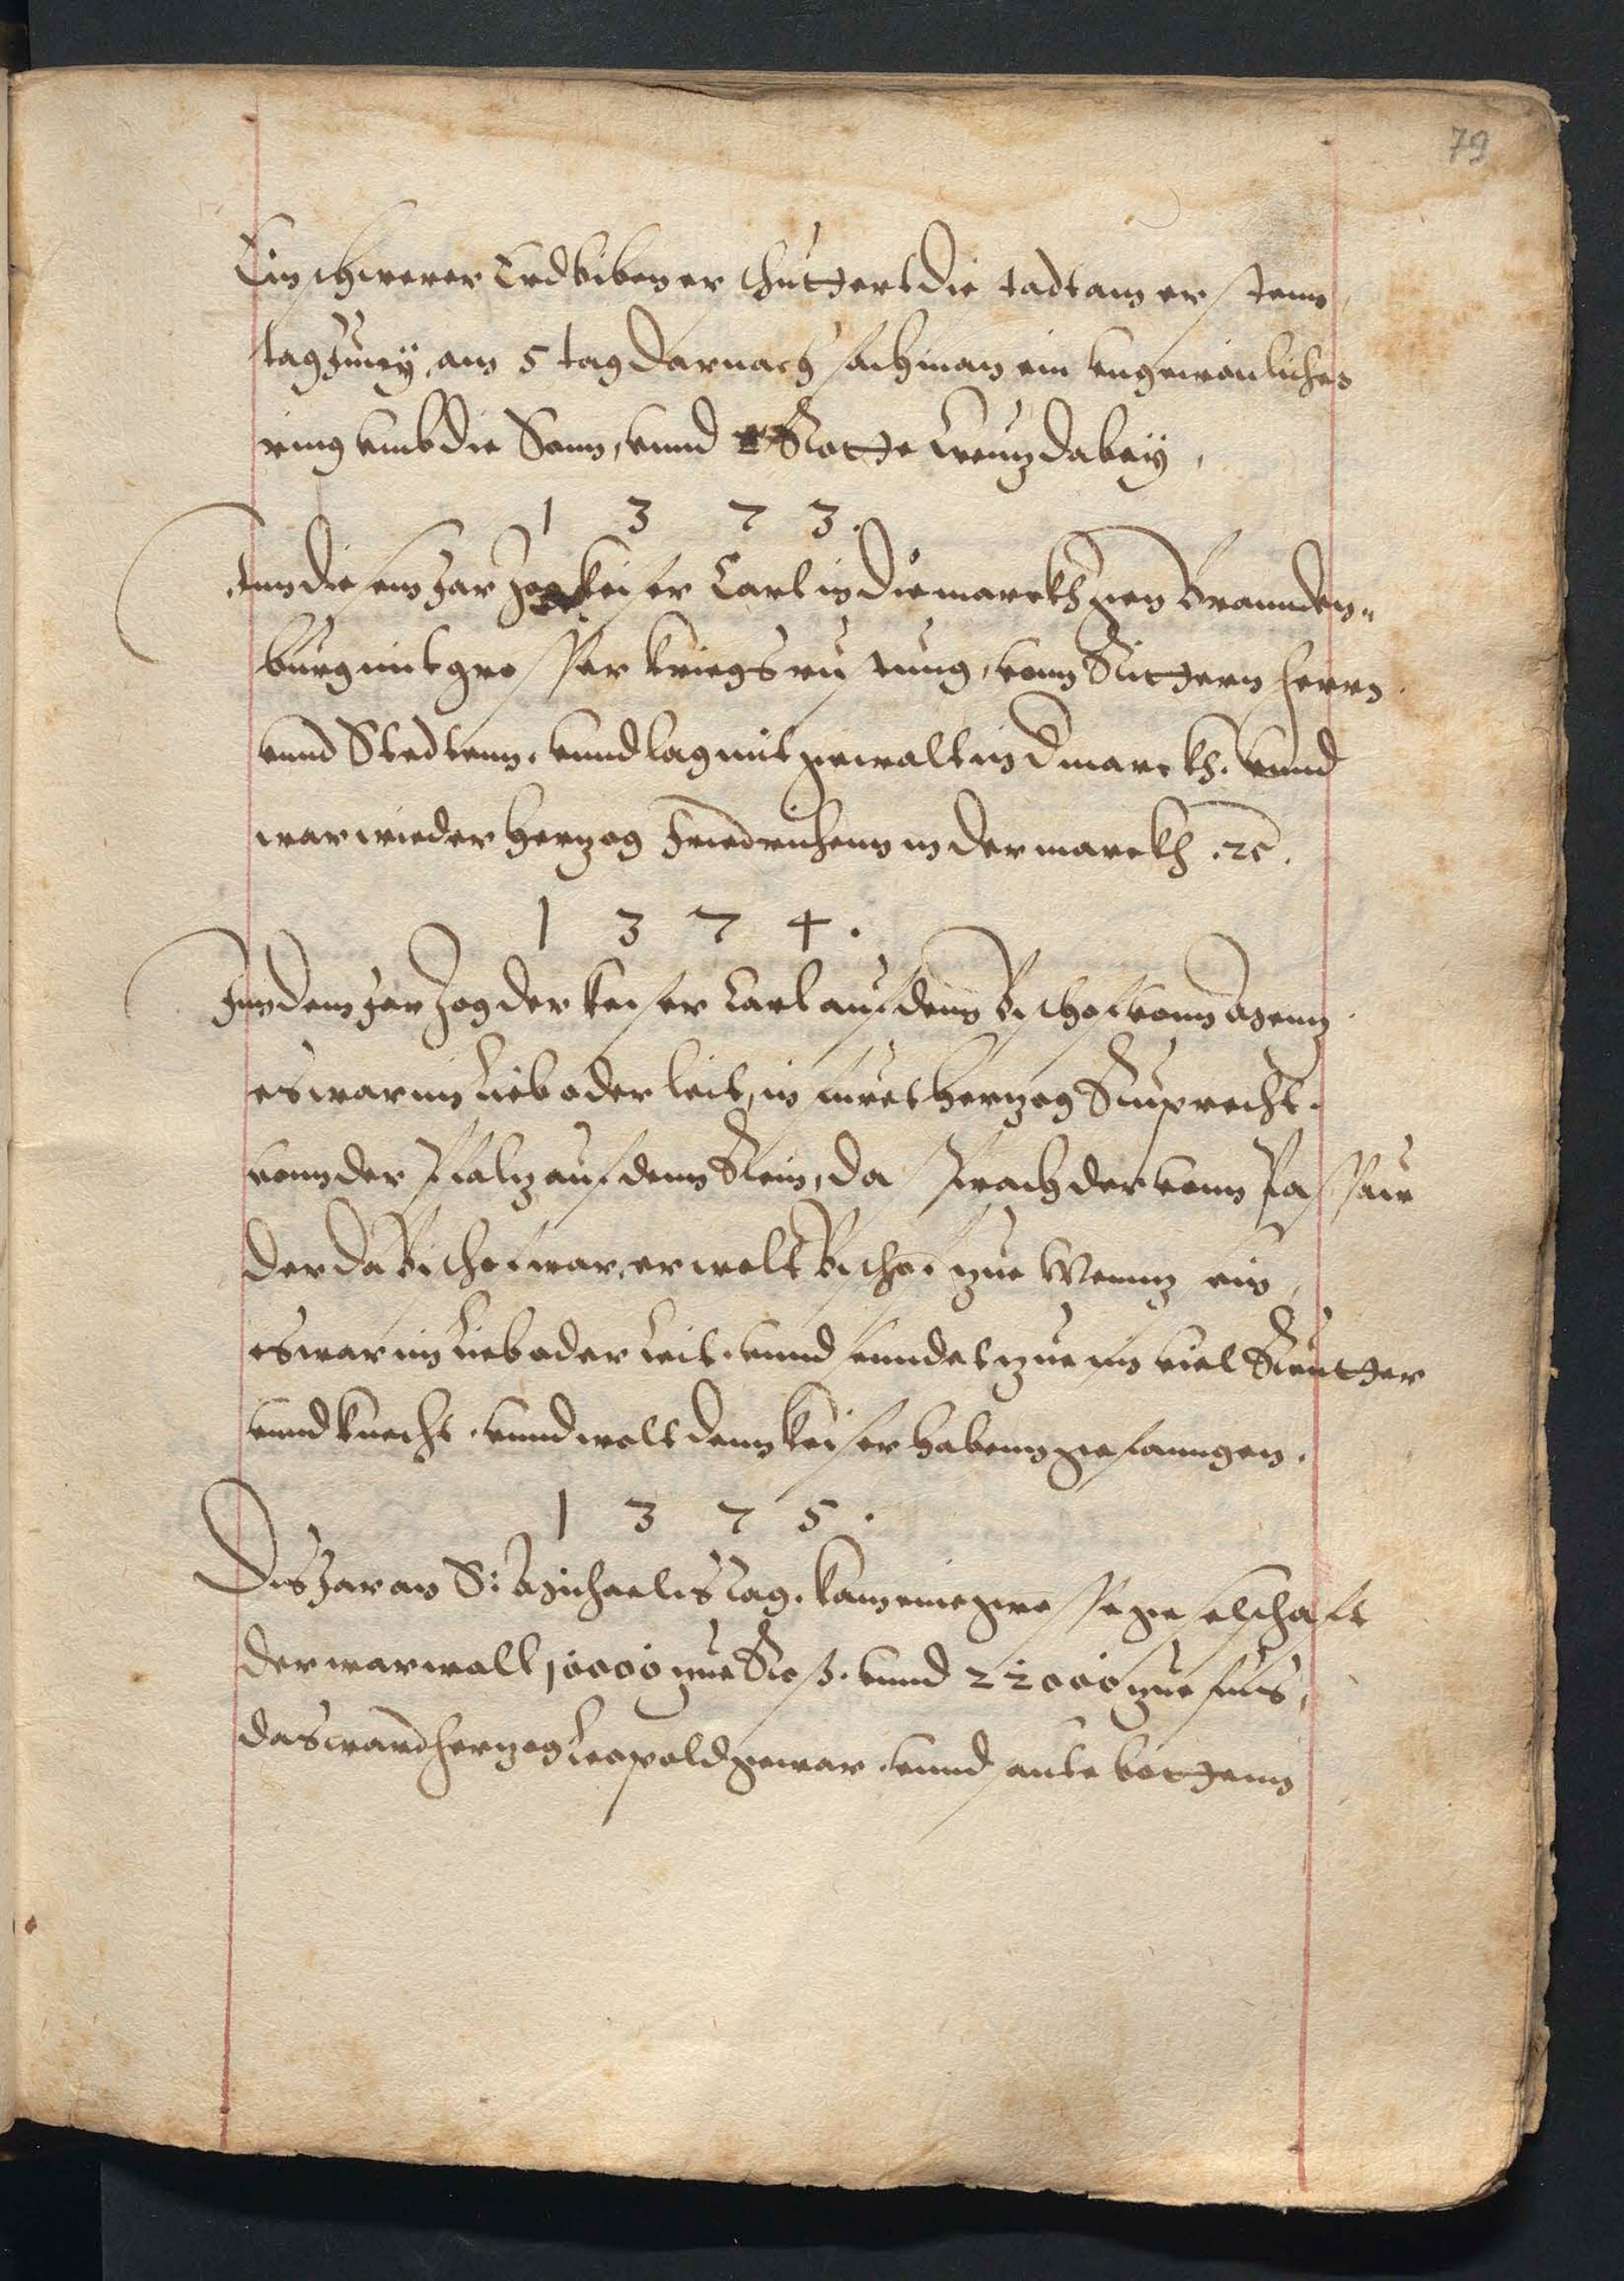 79
Ein schwerer Erdbiben erschuttert die stadt am ersten
tag Juny, am 5 tag darnach sach man ein ungewonlichen
ring umb die Sonn, unnd Rotte Creutz dabey,
1 3 7 3.
Inn diesem Jar Zog keiser Carl in die marckh gen Brannden„
burg mit grosser kriegsrustung, vonn Rittern herrn
unnd Stedtenn. unnd lag mit gewalt in d marckh. unnd
war wieder Hertzog Friedrichenn in der marckh .ꝛc.
1 3 7 4.
Inn dem Jar Zog der keiser Carl auf denn Bischof vonn Mentz
es war im lieb oder leit, in furet Hertzog Ruprecht.
vonn der Pfaltz auf denn Rein, da sprach der vonn Passaw
der da Bischof war, erwelt Bischof zue Mentz ein
es war im Lieb oder Leit. unnd sendet zue im viel Reutter
unnd knecht. unnd wolt denn keiser habenn gefanngen.
1 3 7 5.
Dis Jar an S: Michaelis tag. kam eine grosse geselschaft
der war woll 10000 zue Roß. unnd 22000 zue fuss,
das ward hertzog Leopold gewar. unnd sante bottenn